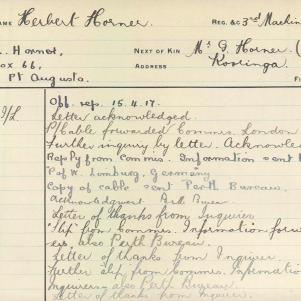 NAME Herbert Horner REG. &c 3rd Machin
. Horner, NEXT OF KIN Mr G. Horner. (
ox 66, ADDRESS Kooringa.
Pt Augusta.
I/L Off. rep. 15.4.17.
Letter acknowledged.
P/Cable forwarded Commrs. London
Further inquiry by letter. Acknowle
Reply from Commrs. Information sent
P of W. Limburg, Germany
Copy of cable sent Perth Bureau.
Acknowledgment Perth Bureau
Letter of thanks from Inquirer
"Slip" from Commrs. Information forw
ers, also Perth Bureau.
Letter of thanks from Inquirer.
Further slip from Commrs. Information
Inquirers - also Perth Bureau.
Letter of thanks from Inquirer.